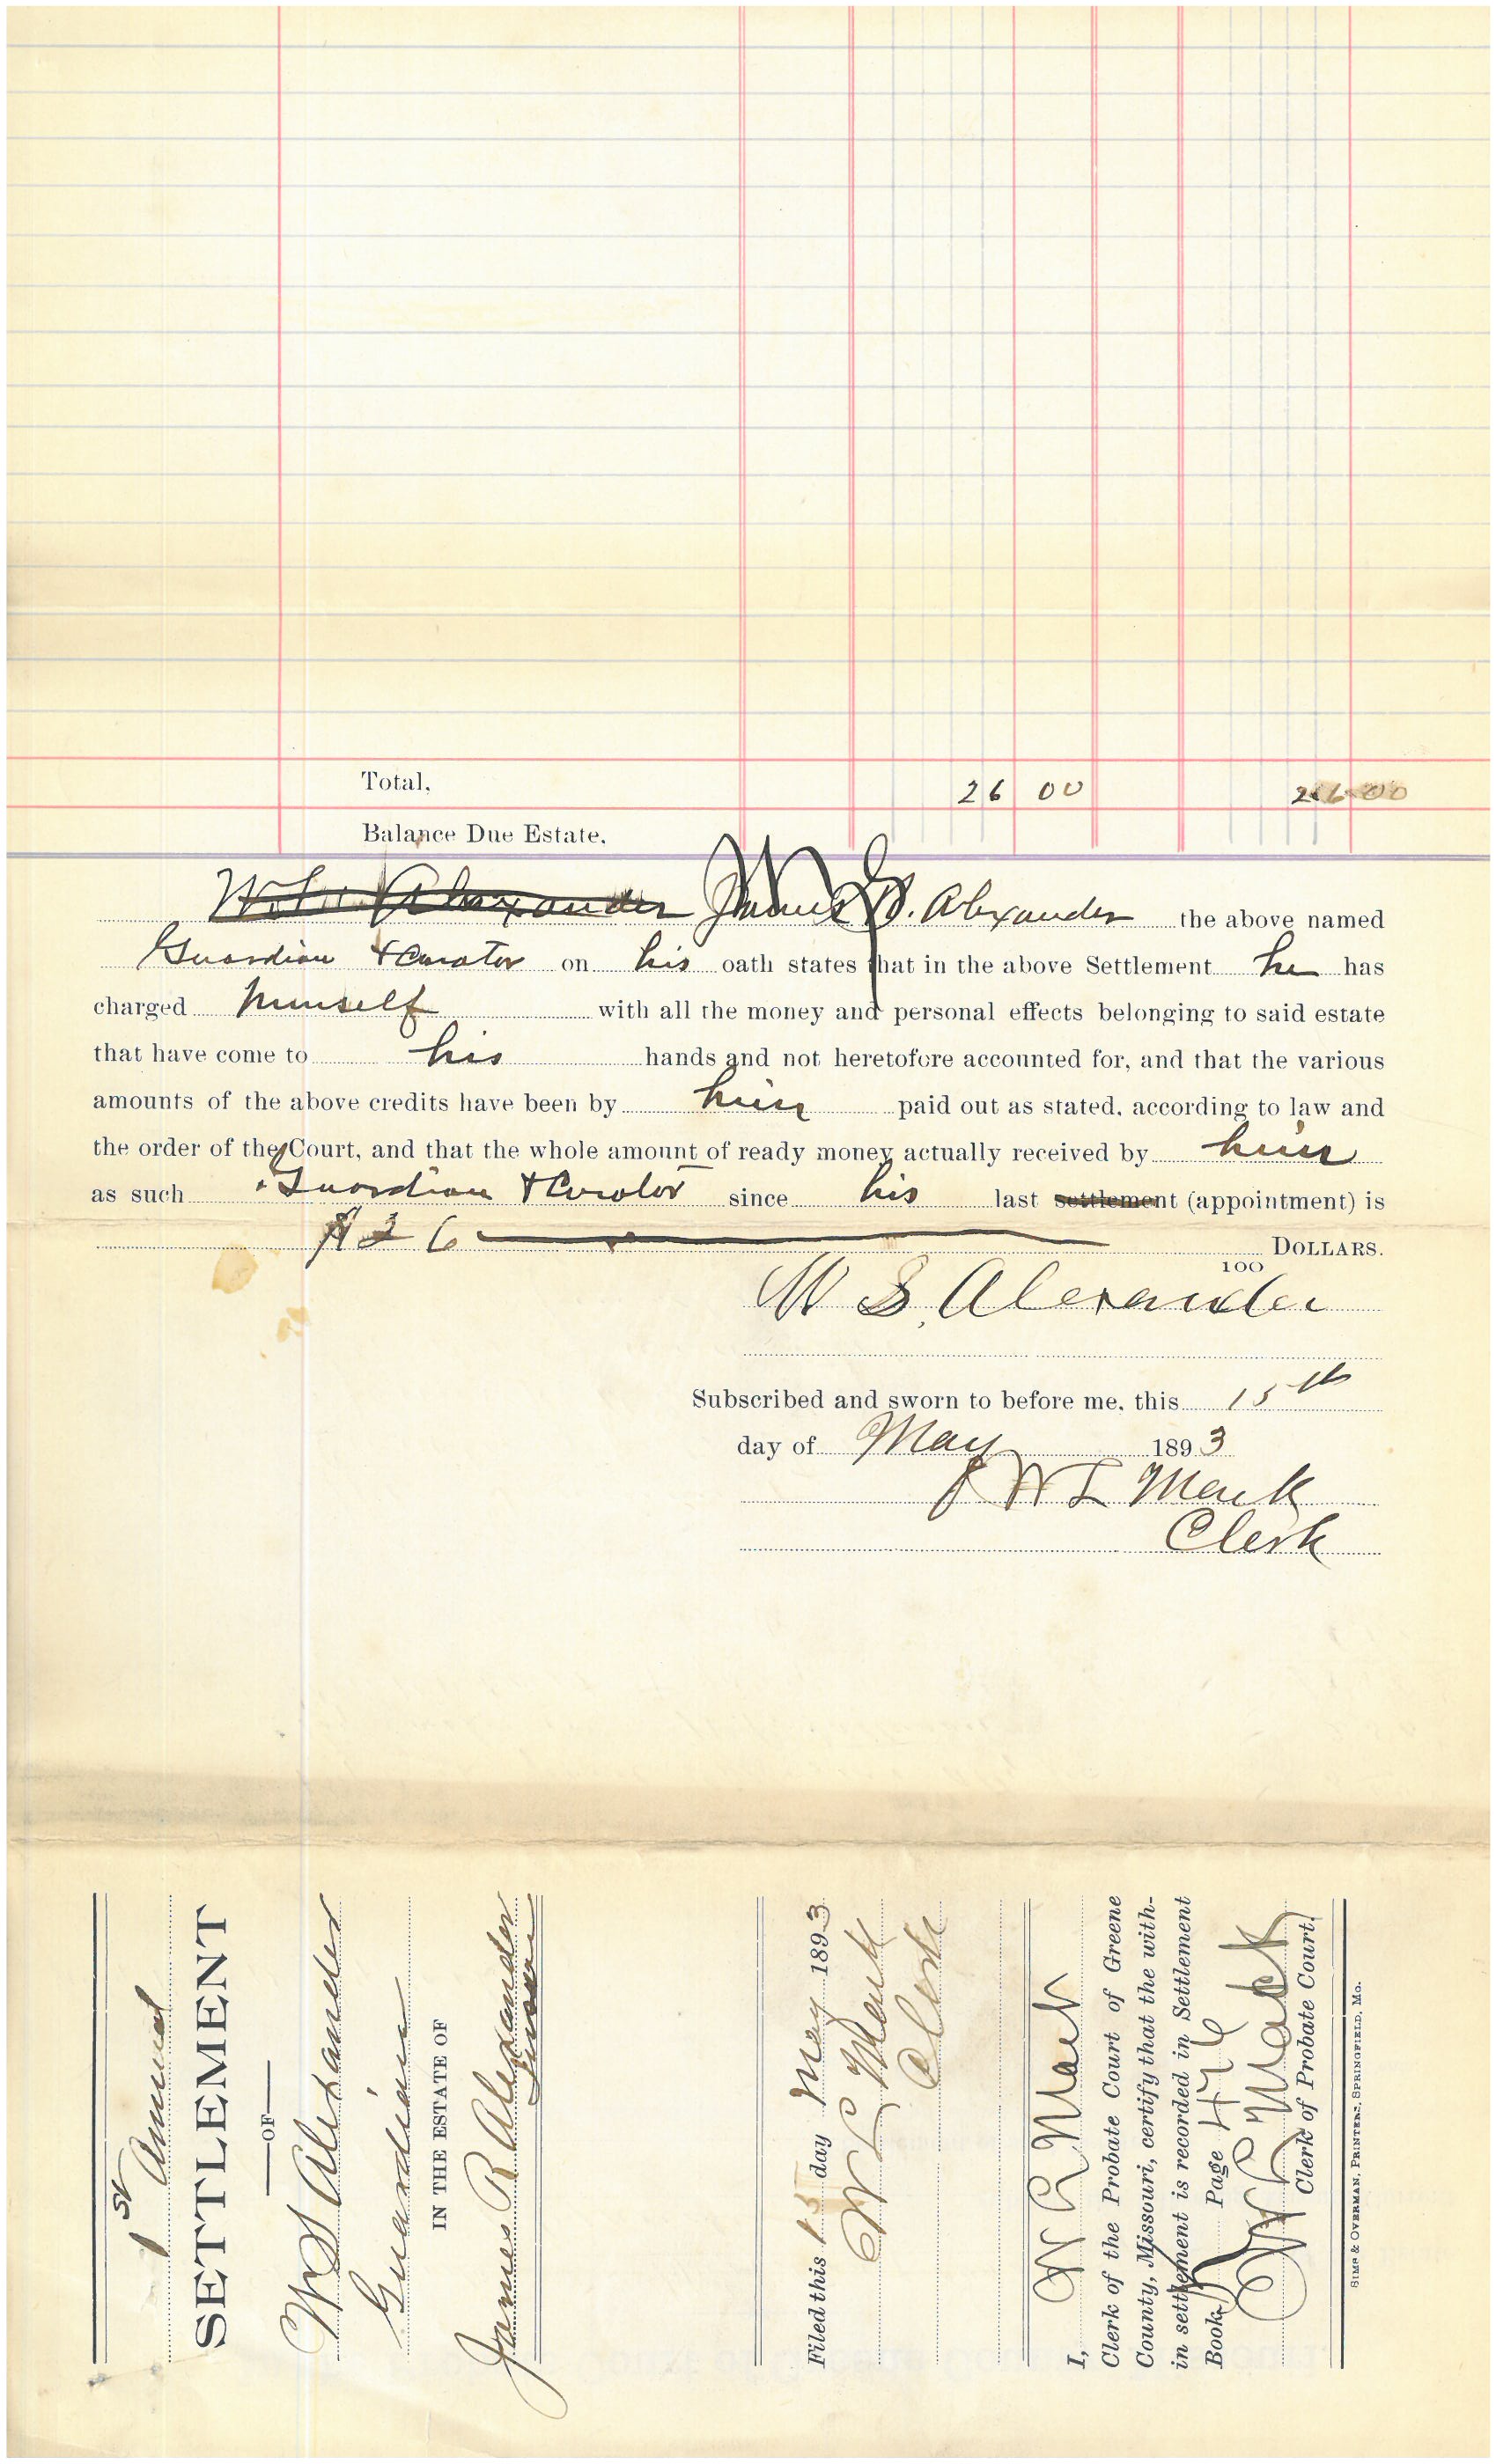 Total, 26 00 26 00
Balance Due Estate,
W. S. Alexander the above named
Guardian & Curator on his oath states that in the above Settlement he has
charged himself with all the money and personal effects belonging to said estate
that have come to his hands and not heretofore accounted for, and that the various
amounts of the above credits have been by him paid out as stated, according to law and
the order of the Court, and that the whole amount of ready money actually received by him
as such Guardian & Curator since his last settlement (appointment) is
$26 DOLLARS.
100
W S. Alexander
Subscribed and sworn to before me, this 15th
day of May 1893
W L Mack
Clerk
1st Annual
SETTLEMENT
OF
W S Alexander
Guardian
IN THE ESTATE OF
James R Alexander
Filed this 15 day May 1893
W L Mack
Clerk
I, W L Mack
Clerk of the Probate Court of Greene
County, Missouri, certify that the with-
in settlement is recorded in Settlement
Book Page 476
W L Mack
Clerk of Probate Court.
SIMS & OVERMAN, PRINTERS, SPRINGFIELD, MO.